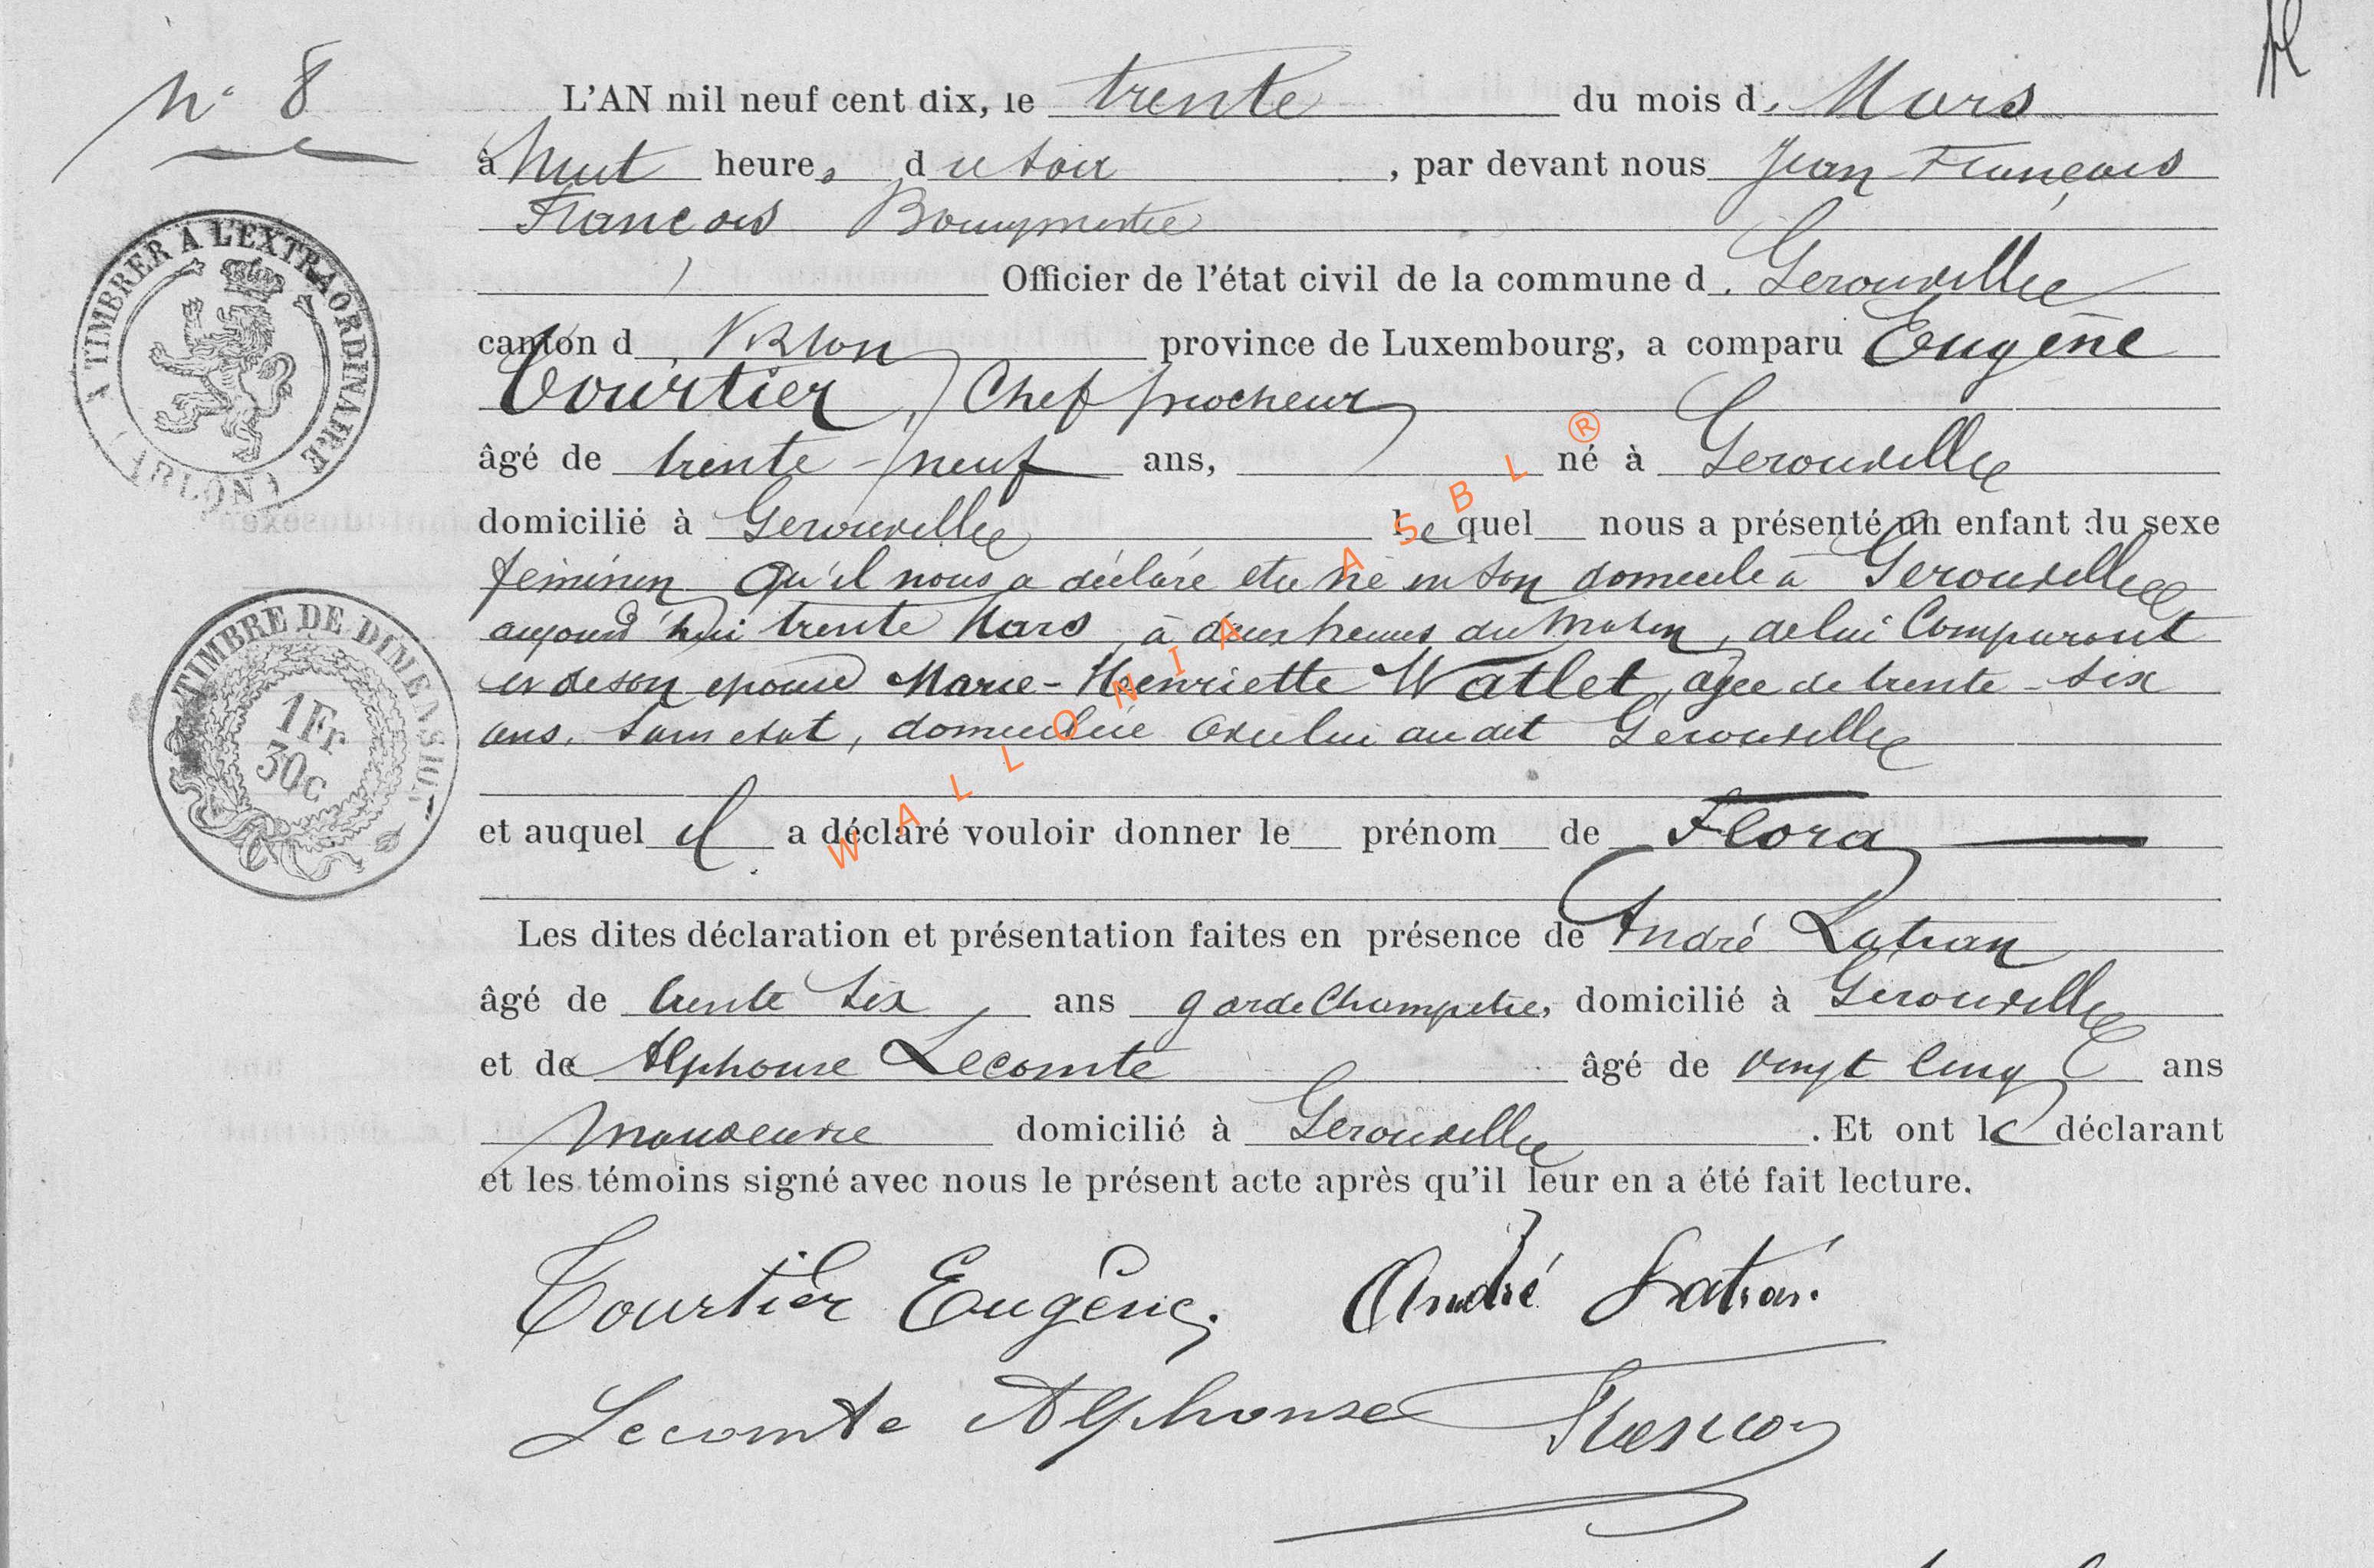 N° 8
L'AN mil neuf cent dix, le trente du mois d, Mars
à huit heures du soir, par devant nous Jean-François
François
Officier de l'état civil de la commune d, Gerouville
canton d, Virton province de Luxembourg, a comparu Eugène
Tourtier, Chef piocheur
âgé de trente-neuf ans, né à Gerouville
domicilié à Gerouville lequel nous a présenté un enfant du sexe
féminin qu'il nous a déclaré etre né en son domicile à Gerouville
aujourd'hui trente Mars, à deux heures du matin, de lui Comparant
et de son epouse Marie-Henriette Watlet, agée de trente-six
ans, sans etat, domiciliée avec lui au dit Gerouville
et auquel il a déclaré vouloir donner le prénom de Flora
Les dites déclaration et présentation faites en présence de André Latran
âgé de trente six ans garde Champetre, domicilié à Gerouville
et de Alphonse Lecomte âgé de vingt cinq ans
manoeuvre domicilié à Gerouville. Et ont le déclarant
et les témoins signé avec nous le présent acte après qu'il leur en a été fait lecture.
Tourtier Eugène. André Latran.
Lecomte Alphonse
A TIMBRER A L'EXTRAORDINAIRE
(ARLON)
TIMBRE DE DIMENSION
1Fr
30c
WALLONIA ASBL ®